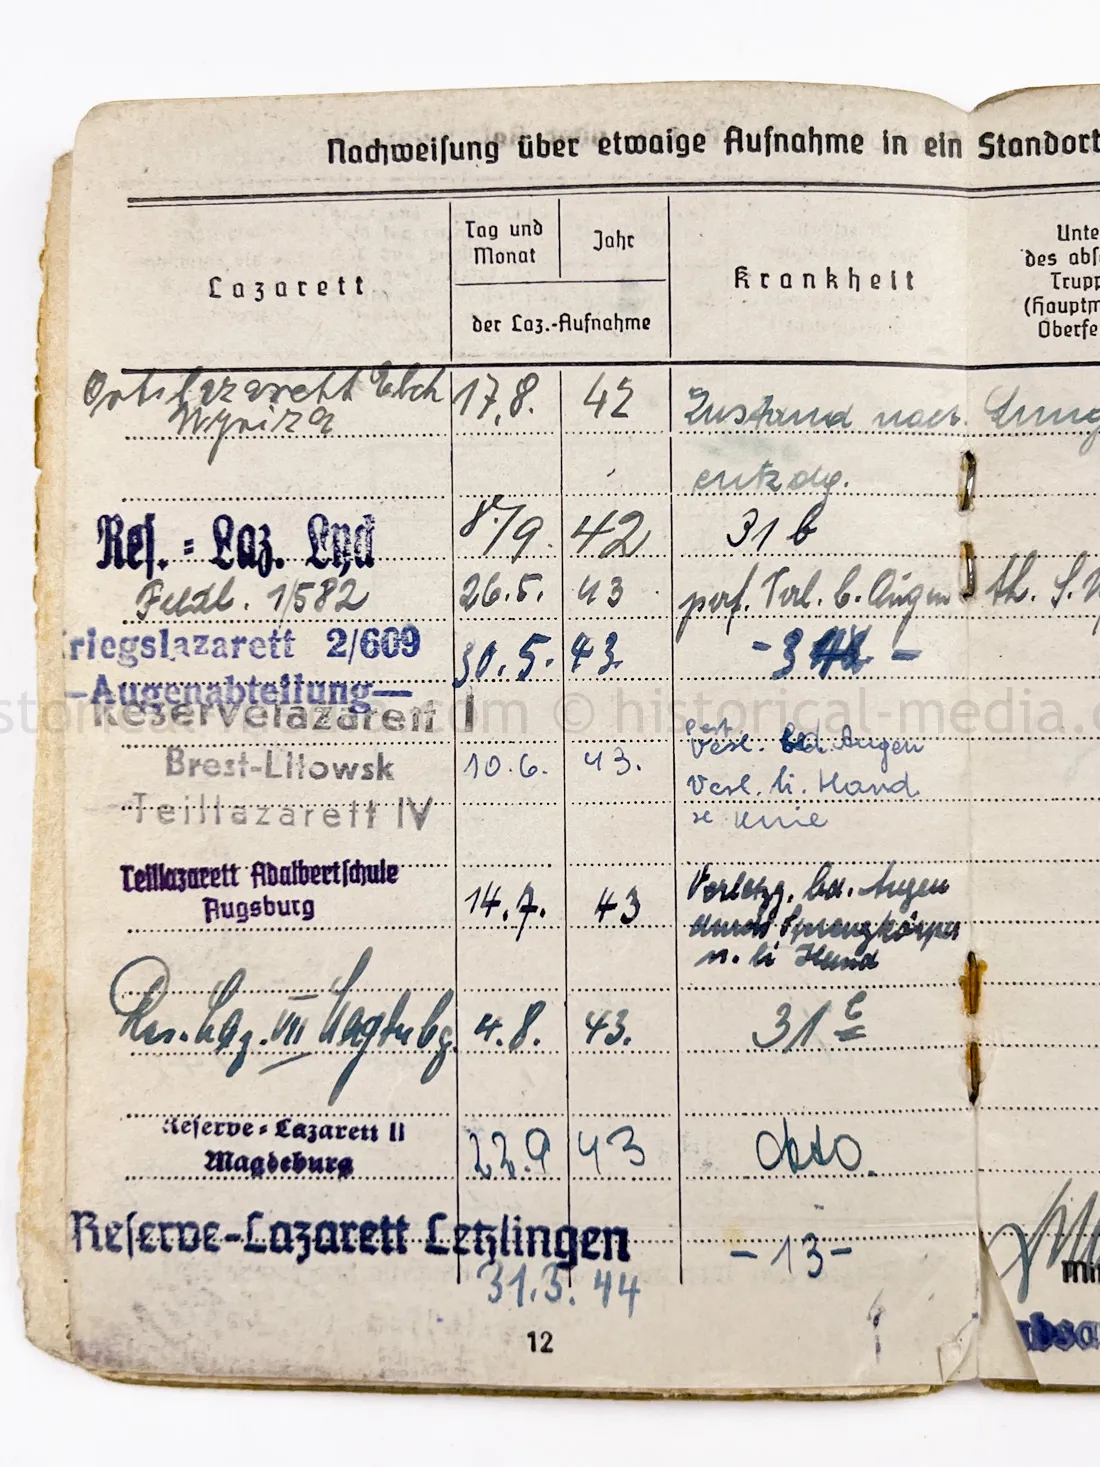 Nachweisung über etwaige Aufnahme in ein Standort
Lazarett
Tag und
Monat
Jahr
der Laz.-Aufnahme
Krankheit
Unte
des abs
Trupp
(Hauptm
Oberfe
Ortslazarett 17.8. 42 Zustand nach Lung
entzdg.
Res.-Laz. Lyck 8./9. 42 31 b
Feldl. 1/582 26.5. 43 perf. Verl. b. Augen
riegslazarett 2/609 30.5. 43. - 3
-Augenabteilung-
Reservelazarett I
Brest-Litowsk 10.6. 43.
Teillazarett IV
perf.
Verl. bd. Augen
Verl. li. Hand
Teillazarett Adalbertschule
Augsburg 14.7. 43
Verletzg. bd. Augen
durch Sprengkörper
u. li Hand
Res. Laz. VII Magdebg. 4.8. 43. 31 c
Reserve-Lazarett II
Magdeburg 22.9 43 dto.
Reserve-Lazarett Letzlingen
31.3.44 - 13 -
12
historical-media.com © historical-media.c